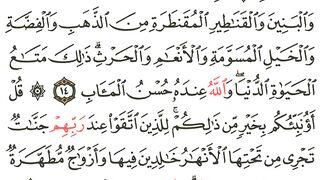 وَٱلْبَنِينَ وَٱلْقَنَٰطِيرِ ٱلْمُقَنطَرَةِ مِنَ ٱلذَّهَبِ وَٱلْفِضَّةِ
وَٱلْخَيْلِ ٱلْمُسَوَّمَةِ وَٱلْأَنْعَٰمِ وَٱلْحَرْثِ ۗ ذَٰلِكَ مَتَٰعُ
ٱلْحَيَوٰةِ ٱلدُّنْيَا ۖ وَٱللَّهُ عِندَهُۥ حُسْنُ ٱلْمَـَٔابِ ١٤ ۞ قُلْ
أَؤُنَبِّئُكُم بِخَيْرٍ مِّن ذَٰلِكُمْ ۚ لِلَّذِينَ ٱتَّقَوْا۟ عِندَ رَبِّهِمْ جَنَّٰتٌ
تَجْرِى مِن تَحْتِهَا ٱلْأَنْهَٰرُ خَٰلِدِينَ فِيهَا وَأَزْوَٰجٌ مُّطَهَّرَةٌ